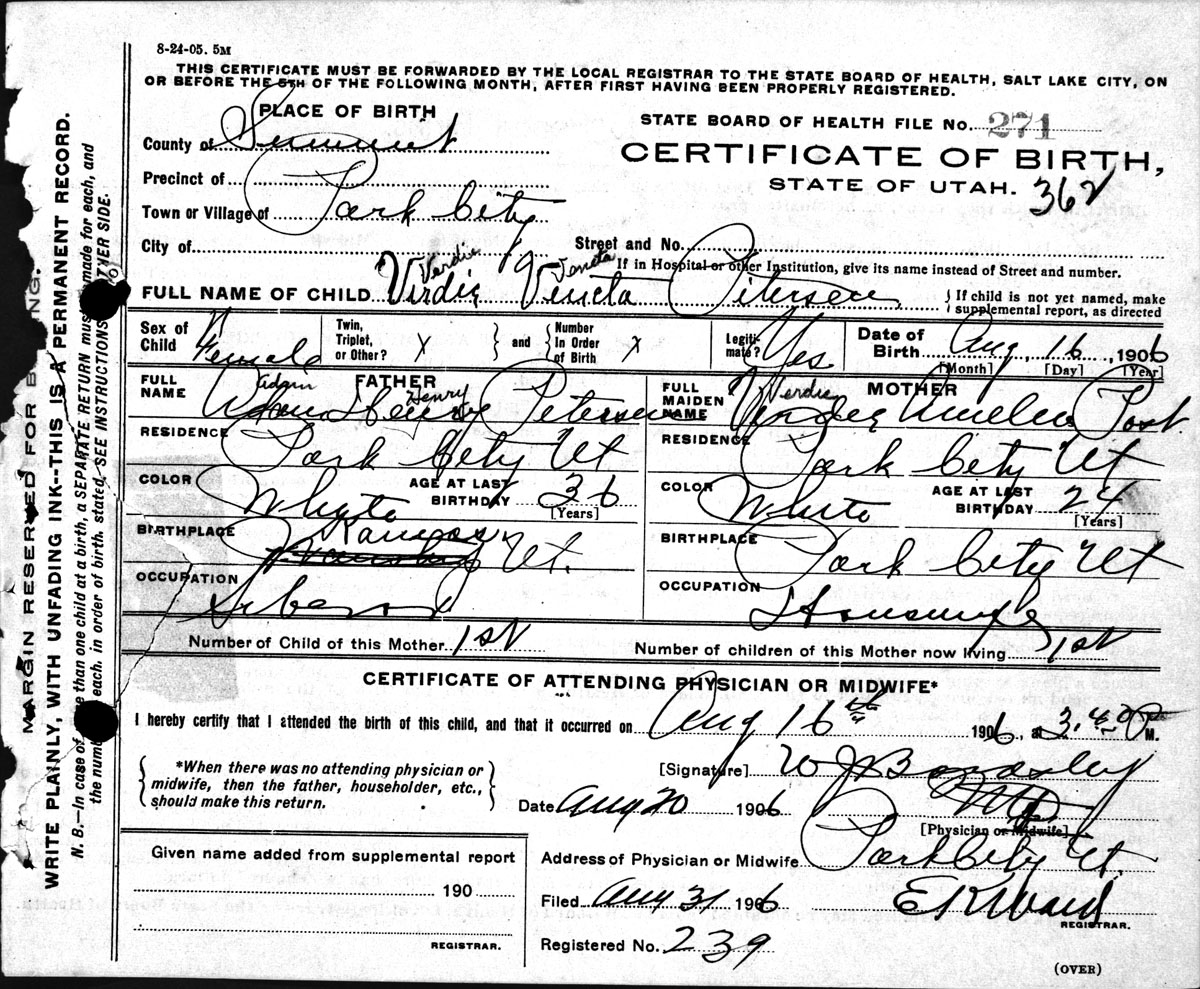 8-24-05. 5M
THIS CERTIFICATE MUST BE FORWARDED BY THE LOCAL REGISTRAR TO THE STATE BOARD OF HEALTH, SALT LAKE CITY, ON
OR BEFORE THE 5TH OF THE FOLLOWING MONTH, AFTER FIRST HAVING BEEN PROPERLY REGISTERED.
PLACE OF BIRTH
STATE BOARD OF HEALTH FILE No. 271
County of Summit
CERTIFICATE OF BIRTH,
Precinct of
STATE OF UTAH. 362
Town or Village of Park City
City of
Street and No.
If in Hospital or other Institution, give its name instead of Street and number.
Verdie Veneta
FULL NAME OF CHILD Virdie Veneta Petersen
{ If child is not yet named, make
supplemental report, as directed
Sex of Child Female
Twin, Triplet, or Other? X } and { Number In Order of Birth X
Legitimate? Yes
Date of Birth Aug 16, 1906
[Month] [Day] [Year]
FULL NAME FATHER Henry Petersen
FULL MAIDEN NAME MOTHER Verdie Amelia Post
RESIDENCE Park City Ut
RESIDENCE Park City Ut
COLOR Whyte AGE AT LAST BIRTHDAY 36 [Years]
COLOR White AGE AT LAST BIRTHDAY 24 [Years]
BIRTHPLACE Kamas, Ut.
BIRTHPLACE Park City Ut
OCCUPATION
OCCUPATION Housewife
Number of Child of this Mother 1st
Number of children of this Mother now living 1st
CERTIFICATE OF ATTENDING PHYSICIAN OR MIDWIFE*
I hereby certify that I attended the birth of this child, and that it occurred on Aug 16th 1906, at 3:40 P M.
{ *When there was no attending physician or
midwife, then the father, householder, etc.,
should make this return. }
[Signature] W J Bardsley
Date Aug 20 1906 MD
[Physician or Midwife]
Given name added from supplemental report
190
REGISTRAR.
Address of Physician or Midwife Park City Ut.
Filed Aug 31 1906 E K Ward
REGISTRAR.
Registered No. 239
(OVER)
MARGIN RESERVED FOR B NG.
WRITE PLAINLY, WITH UNFADING INK--THIS IS A PERMANENT RECORD.
N. B.—In case of more than one child at a birth, a SEPARATE RETURN must be made for each, and
the number each, in order of birth, stated, SEE INSTRUCTIONS OTHER SIDE.